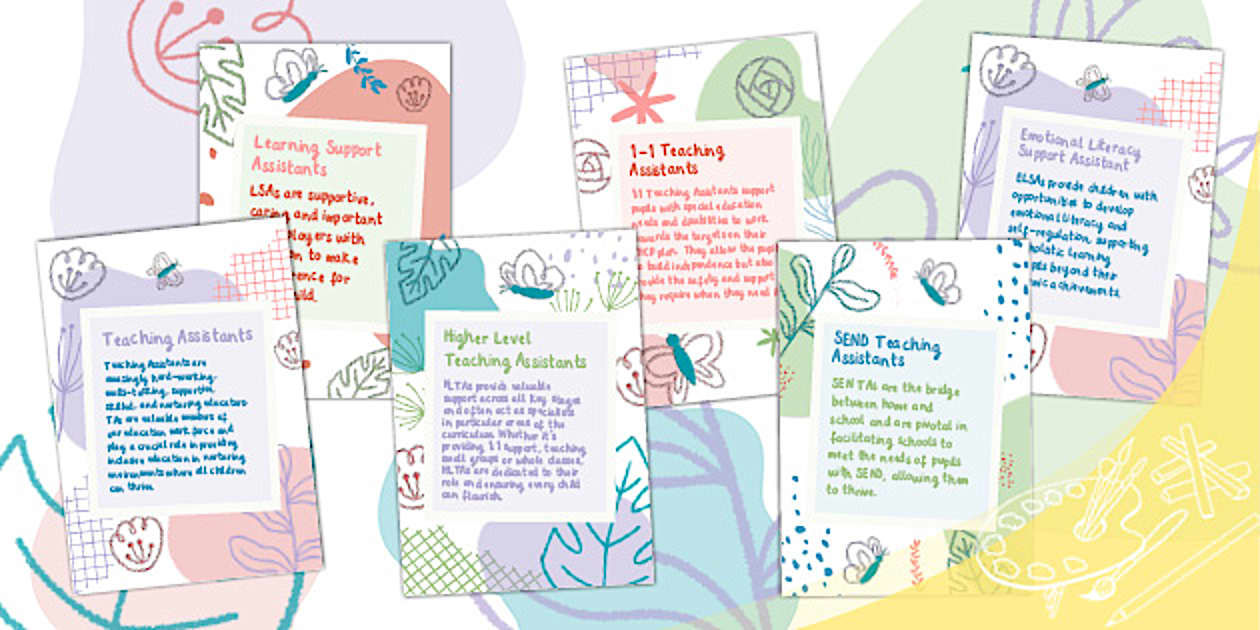 Learning Support
Assistants
LSAs are supportive,
caring and important
players with
to make
for
1-1 Teaching
Assistants
1:1 Teaching Assistants support
pupils with special education
needs and disabilities to work
towards the targets on their
plan. They allow the
build independence but also
provide the safety and support
they require when they need
Emotional Literacy
Support Assistant
ELSAs provide children with
opportunities to develop
emotional literacy and
self-regulation, supporting
learning
beyond their
achievements.
Teaching Assistants
Teaching Assistants are
amazingly hard-working,
multi-tasking, supportive,
skilful, and nurturing educators.
TAs are valuable members of
our education workforce and
play a crucial role in providing
inclusive education in nurturing
environments where all children
can thrive.
Higher Level
Teaching Assistants
HLTAs provide valuable
support across all Key Stages
and often act as specialists
in particular areas of the
curriculum. Whether it's
providing 1:1 support, teaching
small groups or whole classes,
HLTAs are dedicated to their
role and ensuring every child
can flourish.
SEND Teaching
Assistants
SEN TAs are the bridge
between home and
school and are pivotal in
facilitating schools to
meet the needs of pupils
with SEND, allowing them
to thrive.